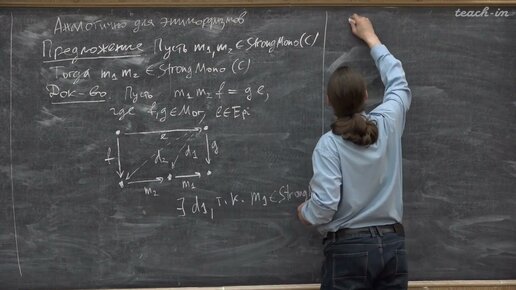 teach-in
Аналогично для эпиморфизмов
Предложение Пусть m₁, m₂ ∈ StrongMono(C)
Тогда m₁ m₂ ∈ StrongMono(C)
Док-во Пусть m₁ m₂ f = g e,
где f, g ∈ Mor, e ∈ Epi
e
f d₂ d₁ g
m₂ m₁
∃ d₁, т.к. m₁ ∈ Strong